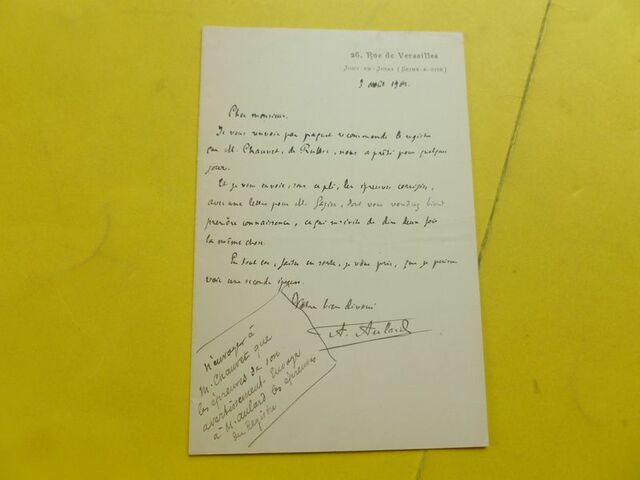 26, Rue de Versailles
JOUY-EN-JOSAS (SEINE-&-OISE)
3 août 190
Cher monsieur,
Je vous renvoie par paquet recommandé le registre
que M. Chauvet, de Ruffec, nous a prêté pour quelques
jours.
Et je vous envoie, sous ce pli, les épreuves corrigées,
avec une lettre pour M. dont vous voudrez bien
prendre connaissance, ce qui m'évite de dire deux fois
la même chose.
En tout cas, faites en sorte, je vous prie, que je puisse
voir une seconde épreuve.
Votre bien dévoué
A. Aulard
n'envoyer à
M. Chauvet que
les épreuves de son
avertissement. Envoyer
à M. Aulard les épreuves
du Registre